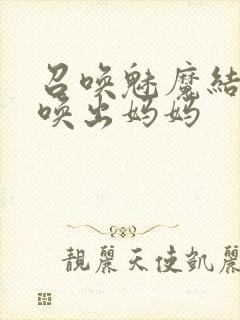 召唤魅魔结
唤出妈妈
靚麗天使凱麗